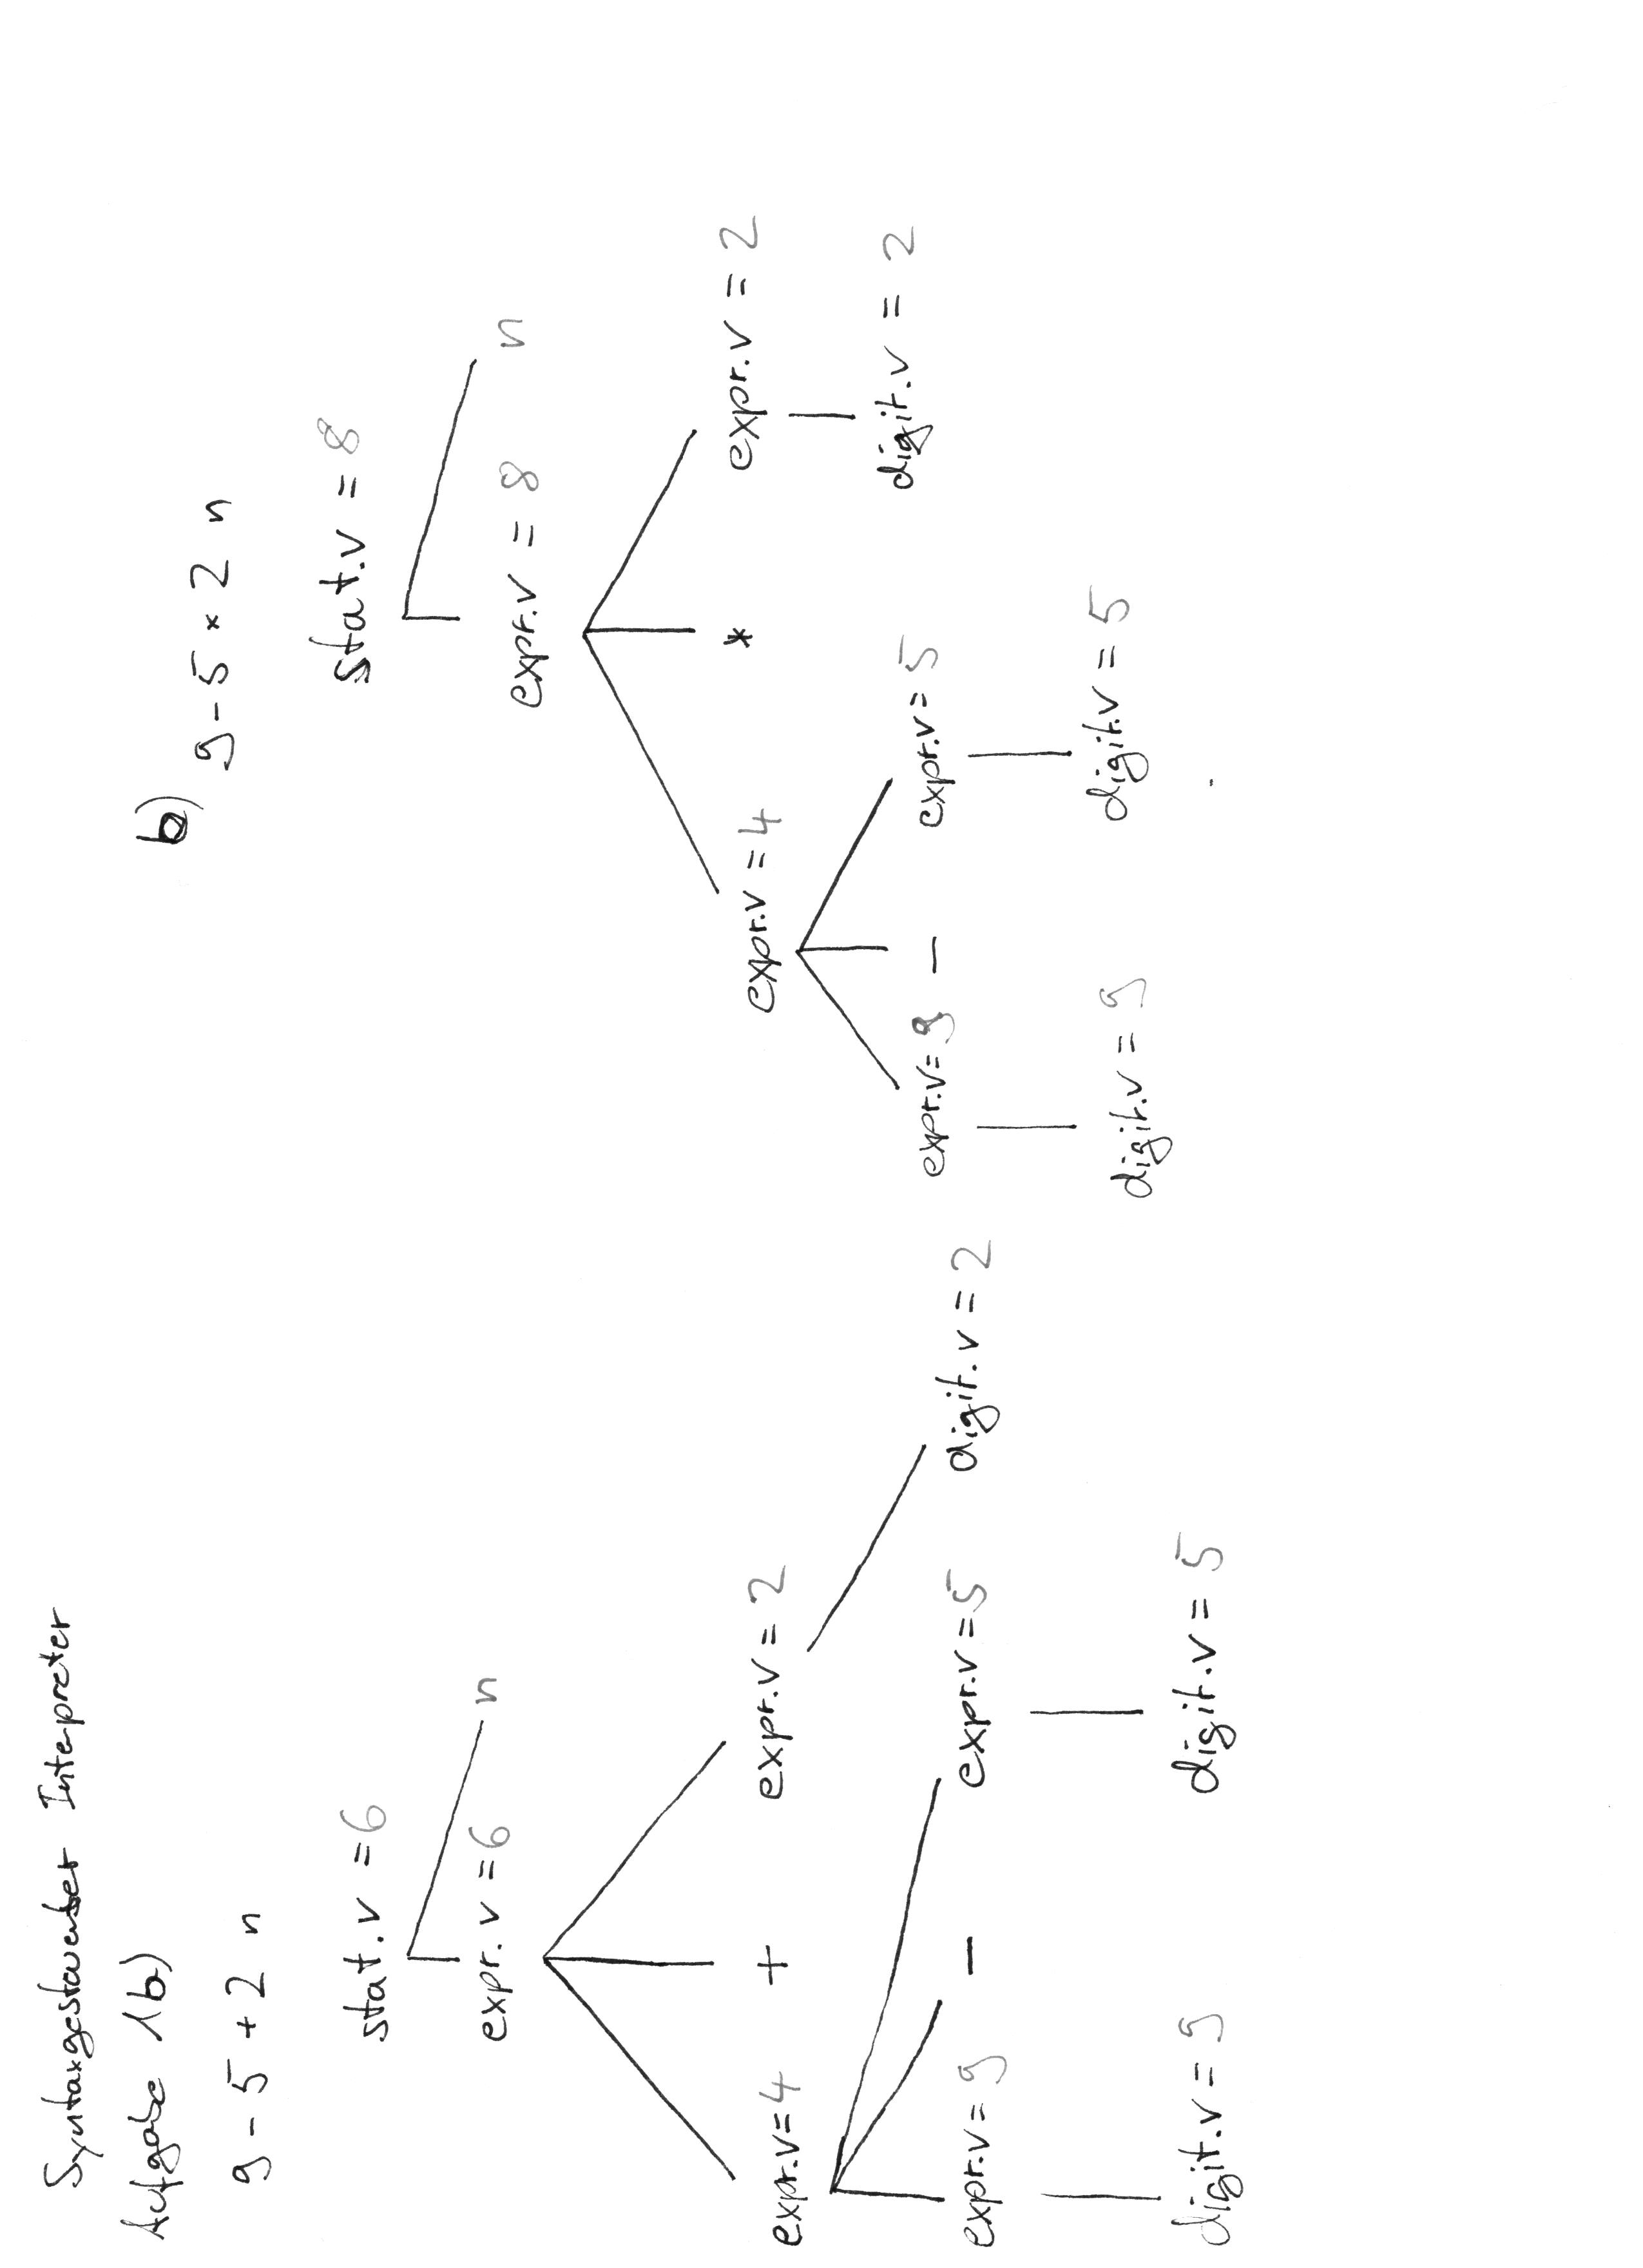 Syntaxgesteuerter Interpreter
Aufgabe 1b)
9 - 5 + 2 n
stat.v = 6
expr.v = 6 n
expr.v = 4 + expr.v = 2
expr.v = 9 - expr.v = 5 digit.v = 2
digit.v = 9 digit.v = 5
b)
9 - 5 * 2 n
stat.v = 8
expr.v = 8 n
expr.v = 4 * expr.v = 2
expr.v = 9 - expr.v = 5 digit.v = 2
digit.v = 9 digit.v = 5